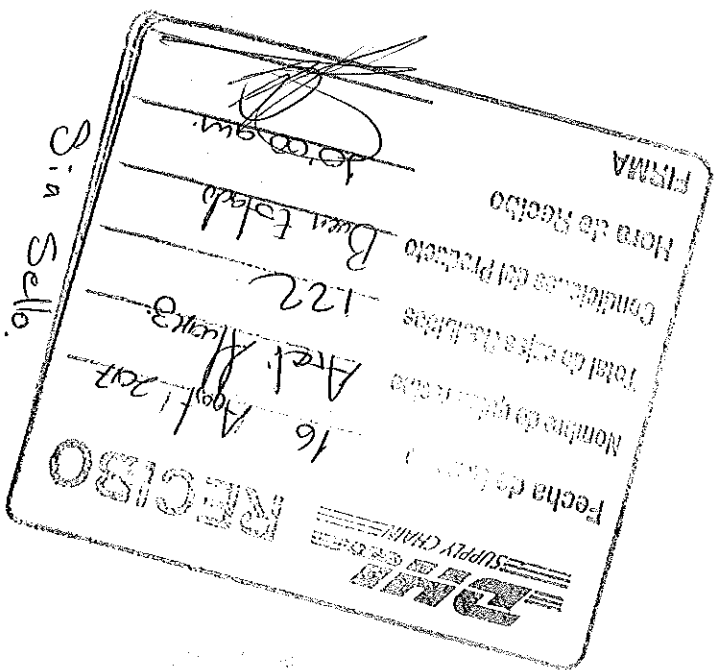 SUPPLY CHAIN
RECIBO
Fecha de 16 Agost 2017
Nombre de quien recibe Areli
Total de cajas recibidas 122
Condiciones del Producto Buen Estado
Hora de Recibo 10:00 am.
FIRMA
Sin Sello.